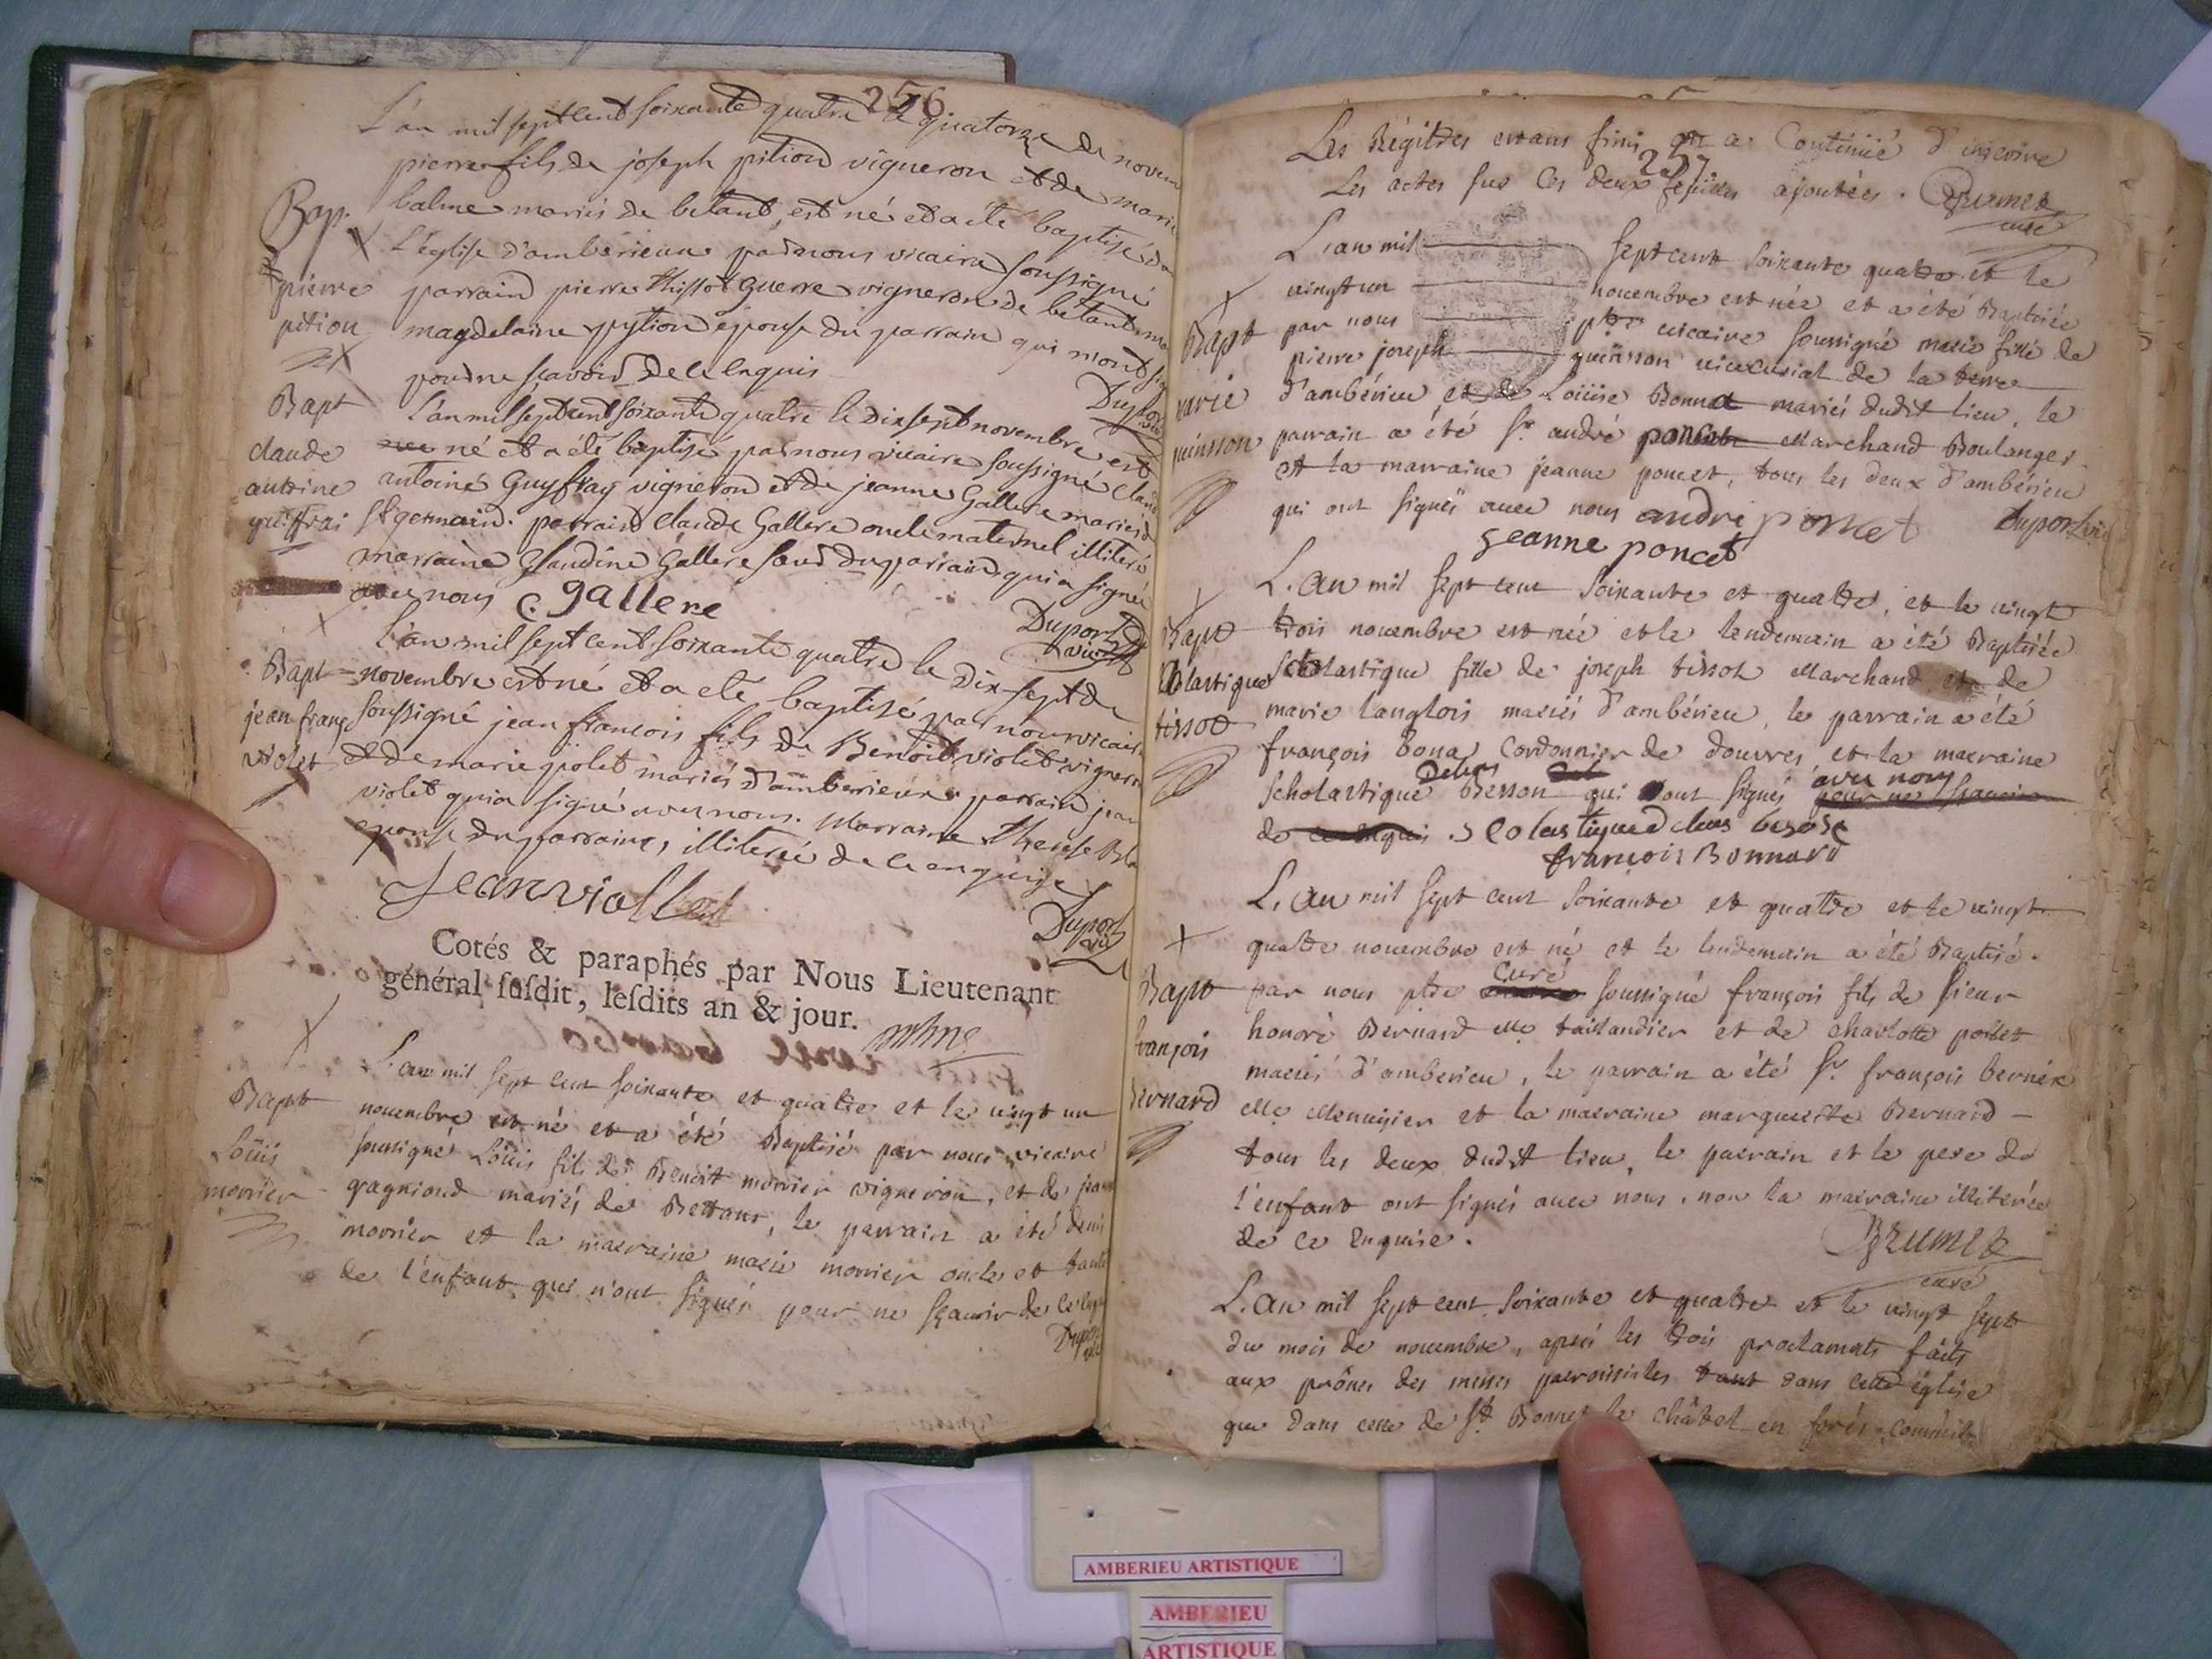 256
L'an mil sept cent soixante quatre le quatorze de novem
pierre fils de joseph pition vigneron et de marie
balme mariés de betant, est né et a été baptisé da
L'église d'amberieux par nous vicaire soussigné
parrain pierre thissot guerre vigneron de betant ma
magdelaine pytion epouse du parrain qui n'ont sig
pour ne scavoir de ce enquis
Duport
vic
Bapt
pierre
pition
L'an mil sept cent soixante quatre le dix sept novembre est
né et a été baptisé par nous vicaire soussigné claud
antoine Guyfray vigneron et de jeanne Gallere mariés d
St germain. parrain Claude Gallere oncle maternel illiteré
marraine Glaudine Gallere soeur du parrain qui a signé
avec nous C. gallere
Duport
vic
Bapt
claude
antoine
guiffrai
L'an mil sept cent soixante quatre le dix-sept de
novembre est né et a été baptisé par nous vicaire
soussigné jean francois fils de Benoit violet vigneron
et de marie jiolet mariés d'amberieux parrain jean
violet qui a signé avec nous. Marraine therese
epouse du parrain, illiterée de ce enquise
Jean viollet
Duport
vic
Bapt
jean franç
violet
Cotés & paraphés par Nous Lieutenant
général ſuſdit, leſdits an & jour.
L'an mil sept cent soixante et quatre et le vingt un
novembre est né et a été Baptisé par nous vicaire
soussigné Loüis fils de Benoit morrier vigneron, et de jean
gagnioud mariés de Bettant, le parrain a été denis
morrier et la marraine marie morrier oncle et tante
de l'enfant qui n'ont signés pour ne sçavoir de ce enquis
Duport
vic
Bapt
Loüis
morrier
257
Les Régitres etans finis on a Continüé d'inscrire
Les actes sur ces deux feüilles ajoutées. Brumet
curé
L'an mil sept cent soixante quatre et le
vingt un novembre est née et a été Baptisée
par nous ptre vicaire soussigné marie fille de
pierre joseph guinsson vicecurial de la terre
d'ambérieu et de Loüise Bonnet mariés dudit lieu, le
parrain a été Sr andré poncet Marchand Boulanger
et la marraine jeanne poncet, tous les deux d'ambérieu
qui ont signés avec nous andre poncet Duport vic
jeanne poncet
Bapt
marie
guinsson
L'an mil sept cent soixante et quatre, et le vingt
trois novembre est née et le lendemain a été Baptisée
scholastique fille de joseph tissot Marchand et de
marie langlois mariés d'ambérieu, le parrain a été
françois bona, Cordonnier de douvres, et la marraine
Scholastique Besson qui ont signés avec nous
francois Bonnard
Bapt
tissot
L'an mil sept cent soixante et quatre et le vingt
quatre novembre est né et le lendemain a été Baptisé
par nous ptre curé soussigné françois fils de sieur
honoré Bernard me taillandier et de charlotte
mariés d'amberieu, le parrain a été Sr françois bernier
me Menuisier et la marraine marguerite Bernard
tous les deux dudit lieu, le parrain et le pere de
l'enfant ont signés avec nous, non la marraine illiterée
de ce enquise.
Brumet
curé
Bapt
françois
Bernard
L'an mil sept cent soixante et quatre et le vingt sept
du mois de novembre, après les trois proclamats faits
aux prônes des messes paroissiales tant dans cette église
que dans celle de St Bonnet le châtel en forés
AMBERIEU ARTISTIQUE
AMBERIEU
ARTISTIQUE